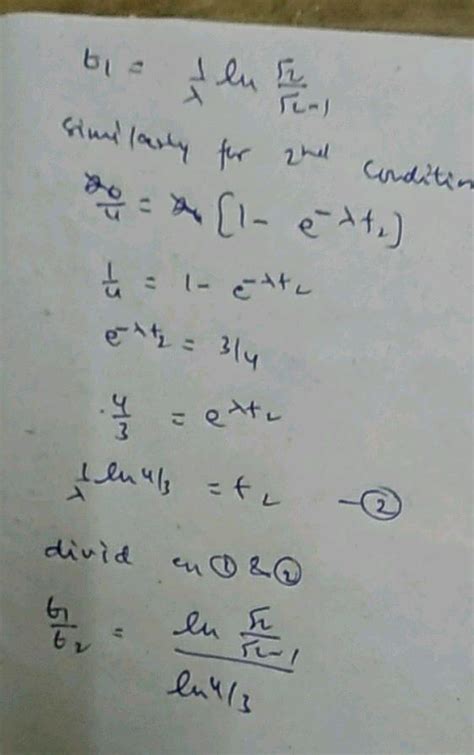 t₁ = 1/λ ln √2/(√2-1)
similarly for 2nd condition
x₀/4 = x₀ [1 - e^-λt₂]
1/4 = 1 - e^-λt₂
e^-λt₂ = 3/4
4/3 = e^λt₂
1/λ ln 4/3 = t₂ —②
divid en ① & ②
t₁/t₂ = ln √2/(√2-1) / ln 4/3